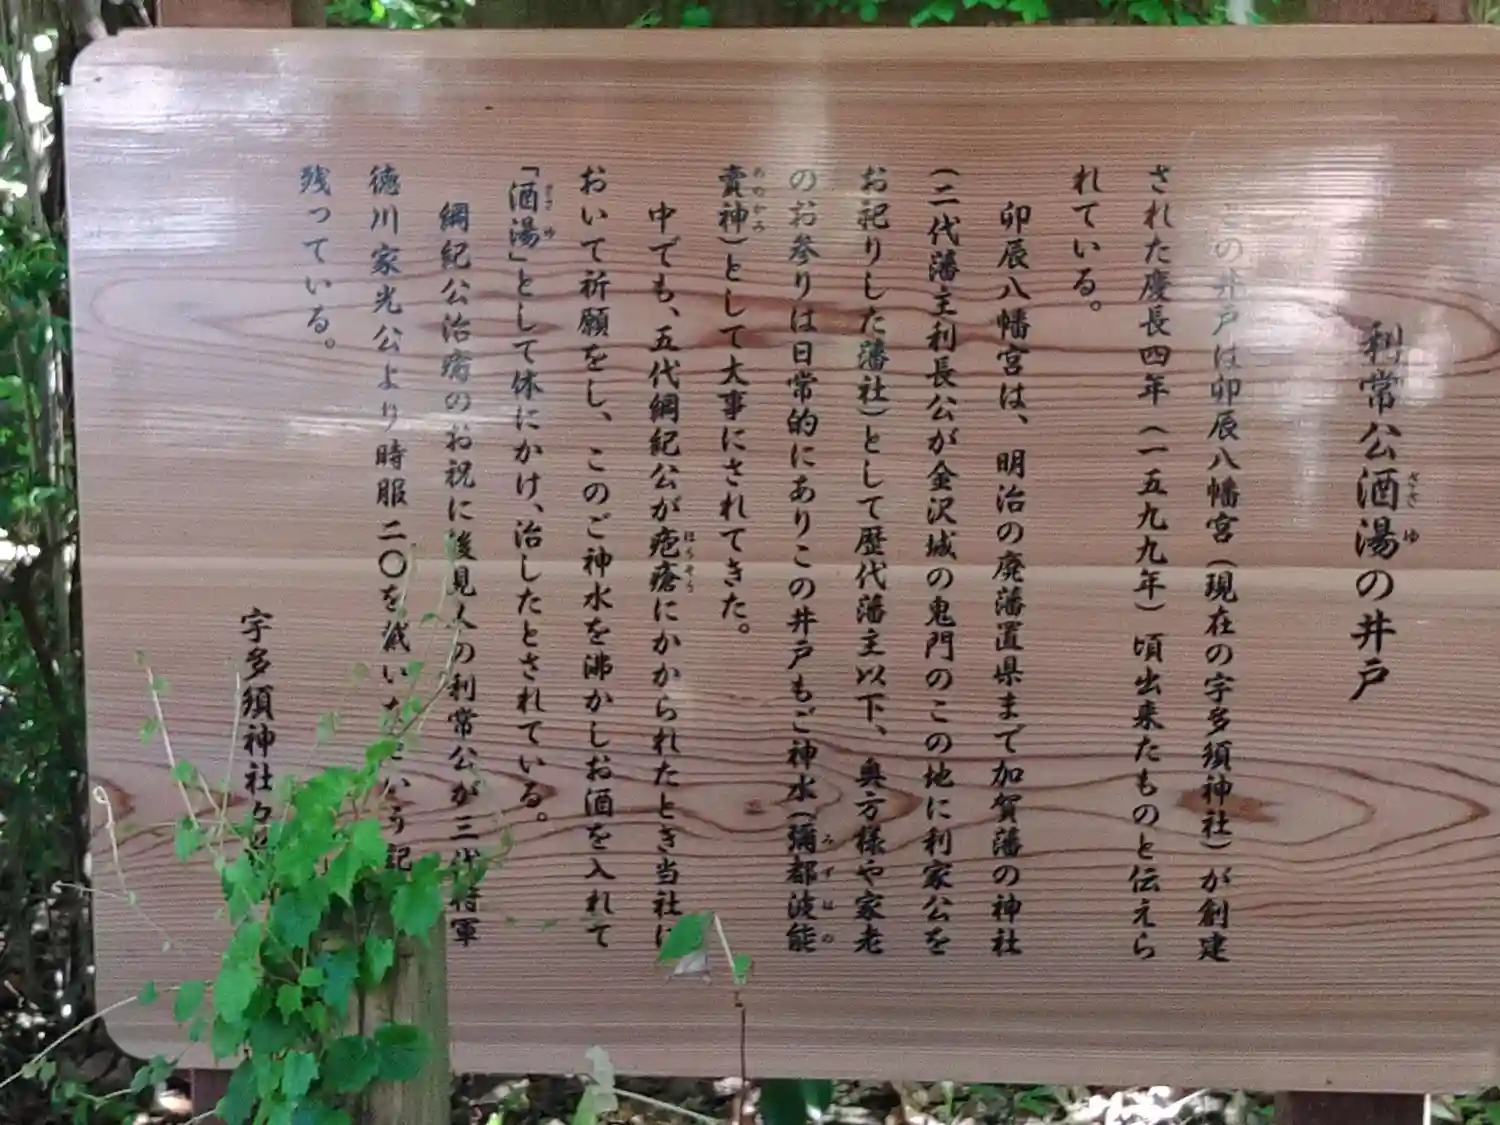 利常公酒湯の井戸
この井戸は卯辰八幡宮(現在の宇多須神社)が創建
された慶長四年(一五九九年)頃出来たものと伝えら
れている。
卯辰八幡宮は、明治の廃藩置県まで加賀藩の神社
(二代藩主利長公が金沢城の鬼門のこの地に利家公を
お祀りした藩社)として歴代藩主以下、奥方様や家老
のお参りは日常的にありこの井戸もご神水(彌都波能
賣神)として大事にされてきた。
中でも、五代綱紀公が疱瘡にかかられたとき当社に
おいて祈願をし、このご神水を沸かしお酒を入れて
「酒湯」として体にかけ、治したとされている。
綱紀公治癒のお祝に後見人の利常公が三代将軍
徳川家光公より時服二〇を戴いたという記
残っている。
宇多須神社